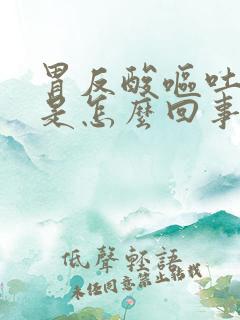 胃反酸嘔吐
是怎麼回事
低聲輕語
未经同意禁止转载